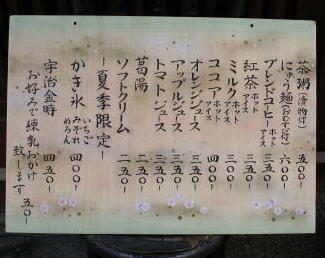 茶粥(漬物付) 五〇〇-
にゅう麺(おむすび付) 六〇〇-
ブレンドコーヒー ホット アイス 三五〇-
紅茶 ホット アイス 三五〇-
ミルク ホット アイス 三〇〇-
ココア ホット アイス 四〇〇
オレンジジュース 三五〇-
アップルジュース 三五〇-
トマトジュース 三五〇-
葛湯 二五〇-
ソフトクリーム 二五〇-
-夏季限定-
かき氷 いちご みぞれ めろん 四〇〇-
宇治金時 四五〇-
お好みで練乳おかけ致します 五〇-